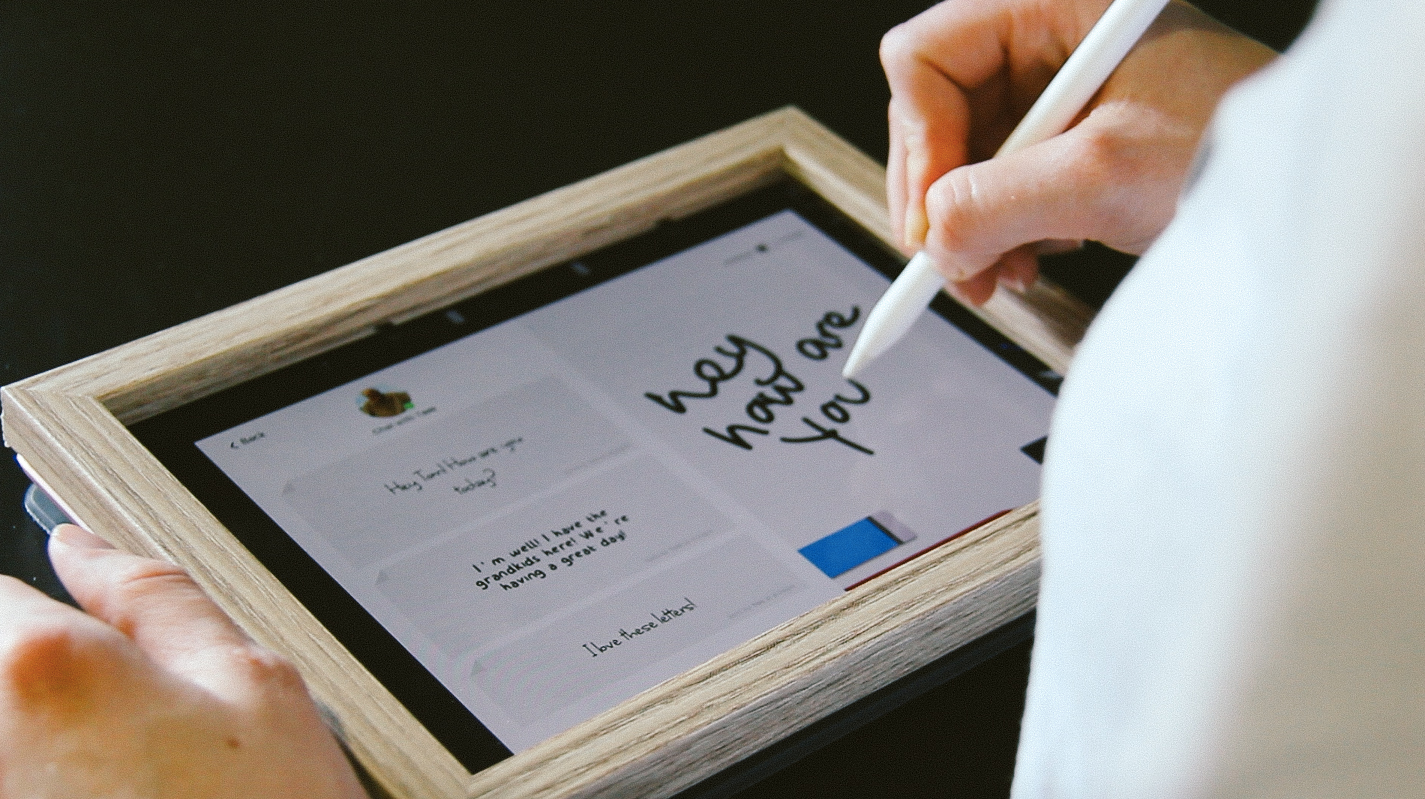 < Back
Chat with Tami
Hey Tami! How are you
today?
I'm well! I have the
grandkids here! We're
having a great day!
I love these letters!
hey
how are
you